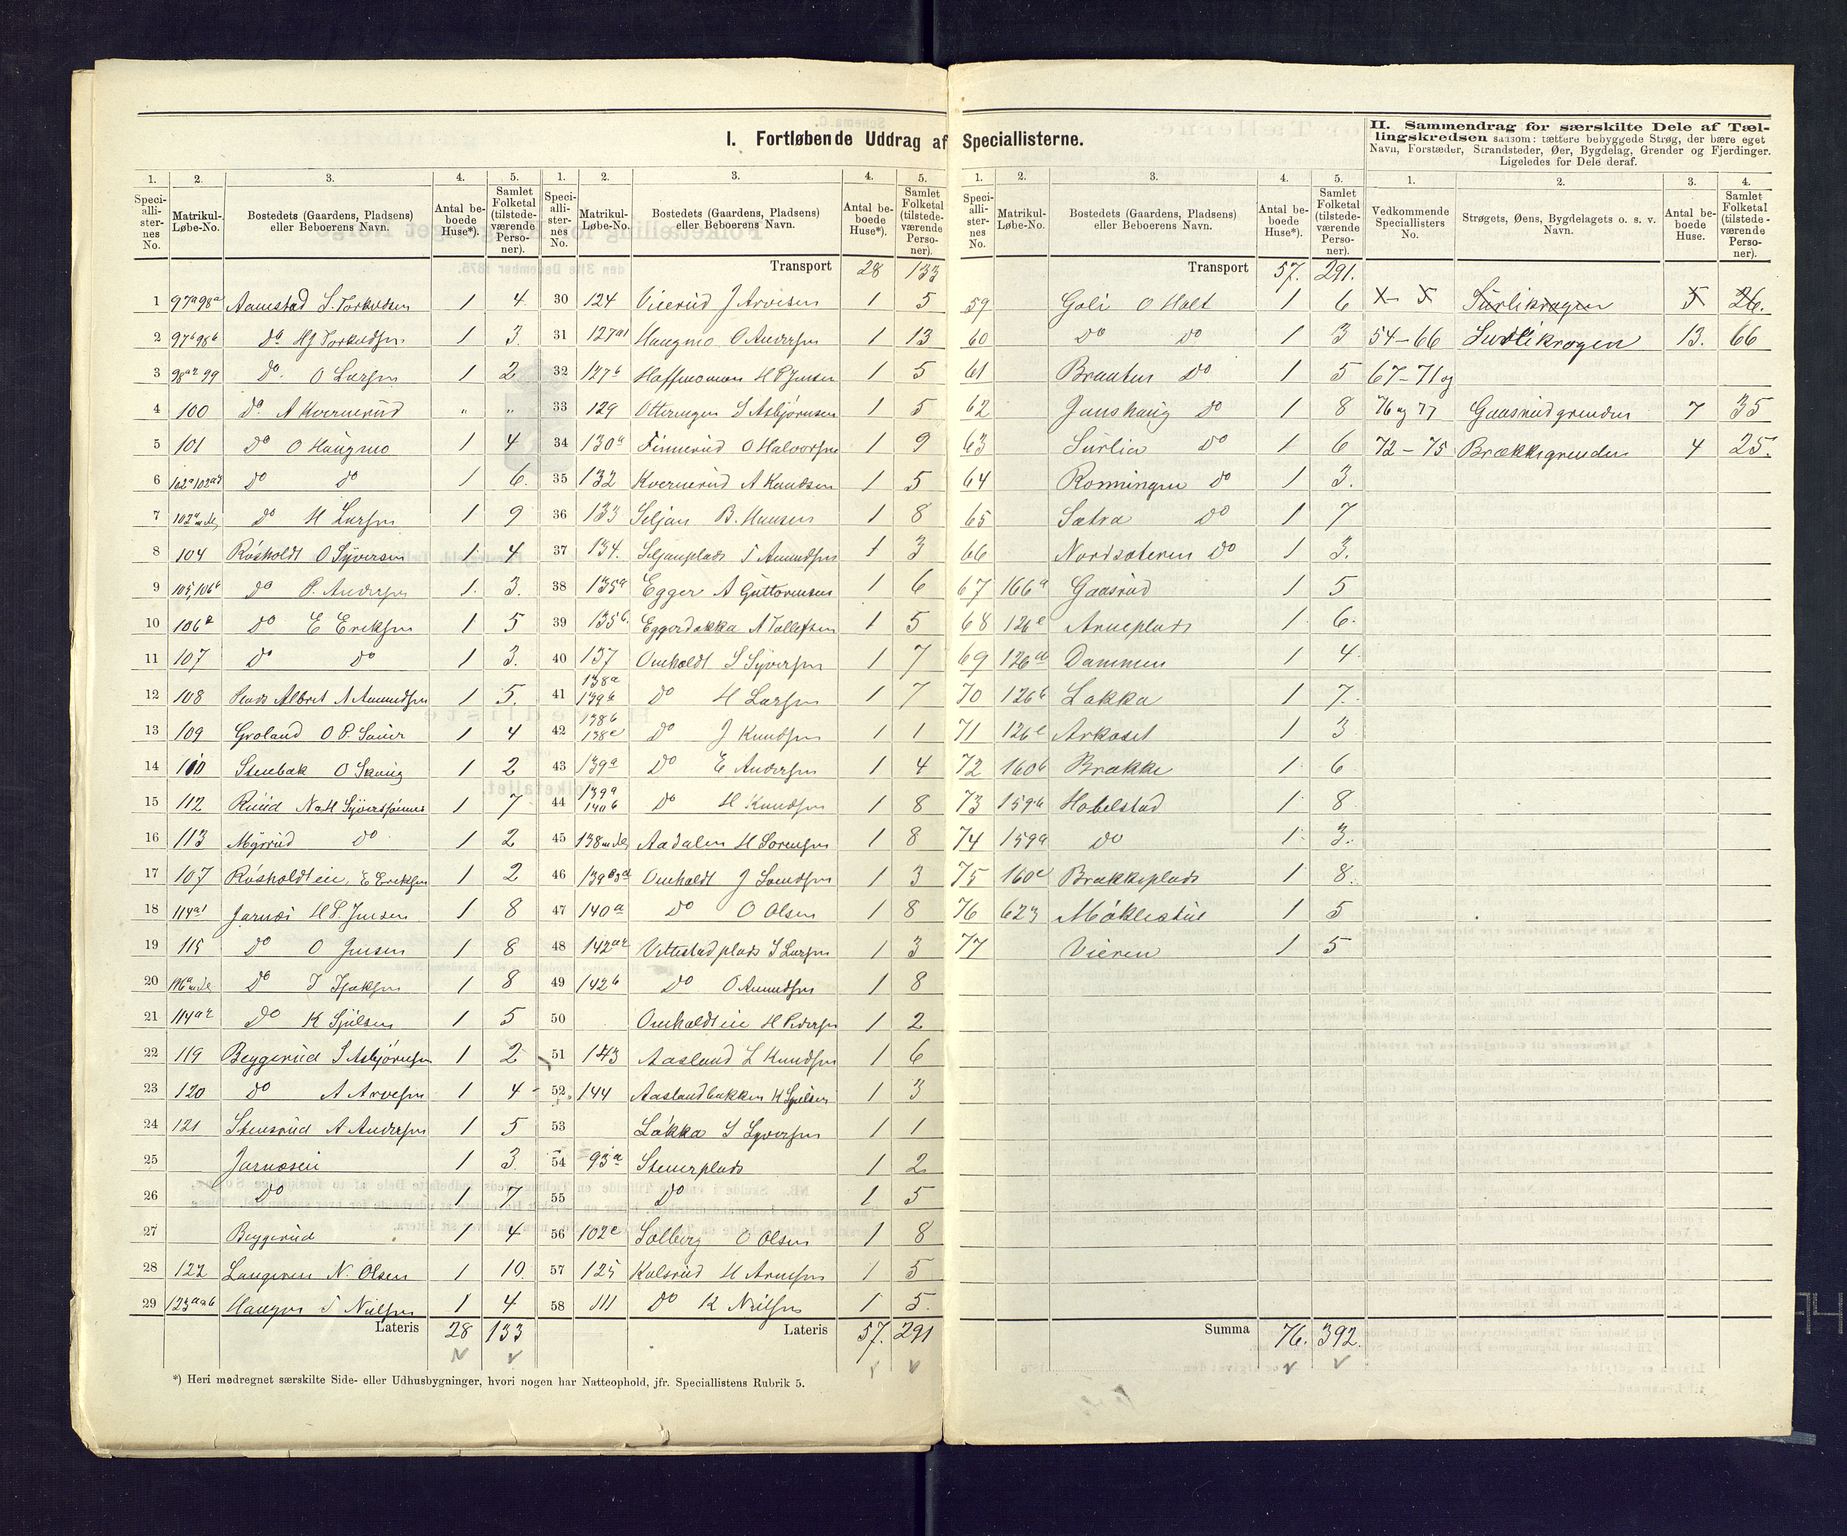 I. Fortløbende Uddrag af Speciallisterne.
II. Sammendrag for særskilte Dele af Tællingskredsen saasom: tættere bebyggede Strøg, der bære eget
Navn, Forstæder, Strandsteder, Øer, Bygdelag, Grender og Fjerdinger.
Ligeledes for Dele deraf.
1. 2. 3. 4. 5.
Speciallisternes No. Matrikul-Løbe-No. Bostedets (Gaardens, Pladsens) eller Beboerens Navn. Antal beboede Huse*). Samlet Folketal (tilstedeværende Personer).
1 97a98a Aamstad S. Torkildsen 1 4
2 97b98b Do Hg Torkildsen 1 3.
3 98a2 99 Do. O Larsen 1 2
4 100 Do A Kvernerud " "
5 101 Do O Haugmo 1 4
6 Do Do 1 6.
7 Do H Larsen 1 9
8 104 Rösholdt O Syversen 1 4
9 105,106b Do P. Andersen 1. 3.
10 106a Do E Eriksen 1 5
11 107 Do Do 1 3.
12 108 Albret A Amundsen 1 5.
13 109 Groland O P. 1 4
14 110 Stenbæk O Skaug 1 2
15 112 Ruud 1 7
16 113 Myrrud Do 1 2
17 107 Rösholdteie, E Eriksen 1 2
18 114a1 Jarnæs H P. Jensen 1 8
19 115 Do O Jensen 1 8
20 Do 1 8
21 114a2 Do K Sjulsen 1 5
22 119 Beygerud S Asbjörnsen 1 2
23 120 Do A Arvesen 1 4
24 121 Stensrud A Andersen 1 5
25 Jarnæseie 1 3.
26 Do 1 7
27 Beygerud 1 4
28 122 Langeren N. Olsen 1 10
29 T Nielsen 1 4
Lateris 28 133
1. 2. 3. 4. 5.
Speciallisternes No. Matrikul-Løbe-No. Bostedets (Gaardens, Pladsens) eller Beboerens Navn. Antal beboede Huse*). Samlet Folketal (tilstedeværende Personer).
Transport 28 133
30 124 Vierud J Arvesen 1 5
31 127a1 Haugmo O Andersen 1 13
32 127b Haffnomoen H P Jensen 1 5
33 129 S Asbjörnsen 1 5
34 130a Finnerud O Halvorsen 1 9
35 132 Kvernerud A Knudsen 1 5
36 133 Seljan B. Hansen 1 8
37 134. Seljanplads T Amundsen 1 3
38 135a Egger A Guttormsen 1 6
39 135b. A Tollefsen 1 5
40 137 Omholdt S Syversen 1 7
41 138a 139b Do H Larsen 1 7
42 138b 138c Do J Knudsen 1 1
43 139a Do E Andersen 1 4
44 139a 140b Do H Knudsen 1 8
45 Aadalen H Sorensen 1 8
46 Omholdt J 1 3
47 140a Do O Olsen 1 8
48 142a2 Vittestadplads S Larsen 1 3
49 142b Do O Amundsen 1 8
50 Omholdteie H Pedersen 1 2
51 143 Aasland L Knudsen 1 6
52 144 Aaslandbakken K Sjulsen 1 3
53 Lökka S Syversen 1 1
54 93a Stenerplads 1 2
55 Do 1 5
56 102c Solberg O Olsen 1 8
57 125 Kalsrud H Arnesen 1 5
58 111 Do K Nielsen 1 5.
Lateris 57. 291
*) Heri medregnet særskilte Side- eller Udhusbygninger, hvori nogen har Natteophold, jfr. Speciallistens Rubrik 5.
1. 2. 3. 4. 5.
Speciallisternes No. Matrikul-Løbe-No. Bostedets (Gaardens, Pladsens) eller Beboerens Navn. Antal beboede Huse*). Samlet Folketal (tilstedeværende Personer).
Transport 57. 291.
59 Goli O Holt 1 6
60 Do Do 1 3
61 Do 1 5
62 Jonshaug Do 1 8
63 Surlia Do 1 6
64 Ronningen Do 1 3.
65 Sætra Do 1 7
66 Nordsæteren Do 1 3.
67 166a Gaasrud 1 5
68 126c Arneplads 1 6.
69 126a Dammen 1 4
70 126b Løkka 1 7.
71 126c 1 3
72 160b Brække 1 6
73 159b Hobelstad 1 8
74 159a Do 1 3.
75 160c Brækkeplads 1 8
76 1 5
77 Vieren 1 5
Summa 76. 392.
1. 2. 3. 4.
Vedkommende Speciallisters No. Strøgets, Øens, Bygdelagets o. s. v. Navn. Antal beboede Huse. Samlet Folketal (tilstedeværende Personer).
Surlikrogen 5 26.
54-66 Surlikrogen 13. 66
67-71 og
76 og 77 Gaasrudgrenden 7 35
72-75 Brækkegrenden 4 25.